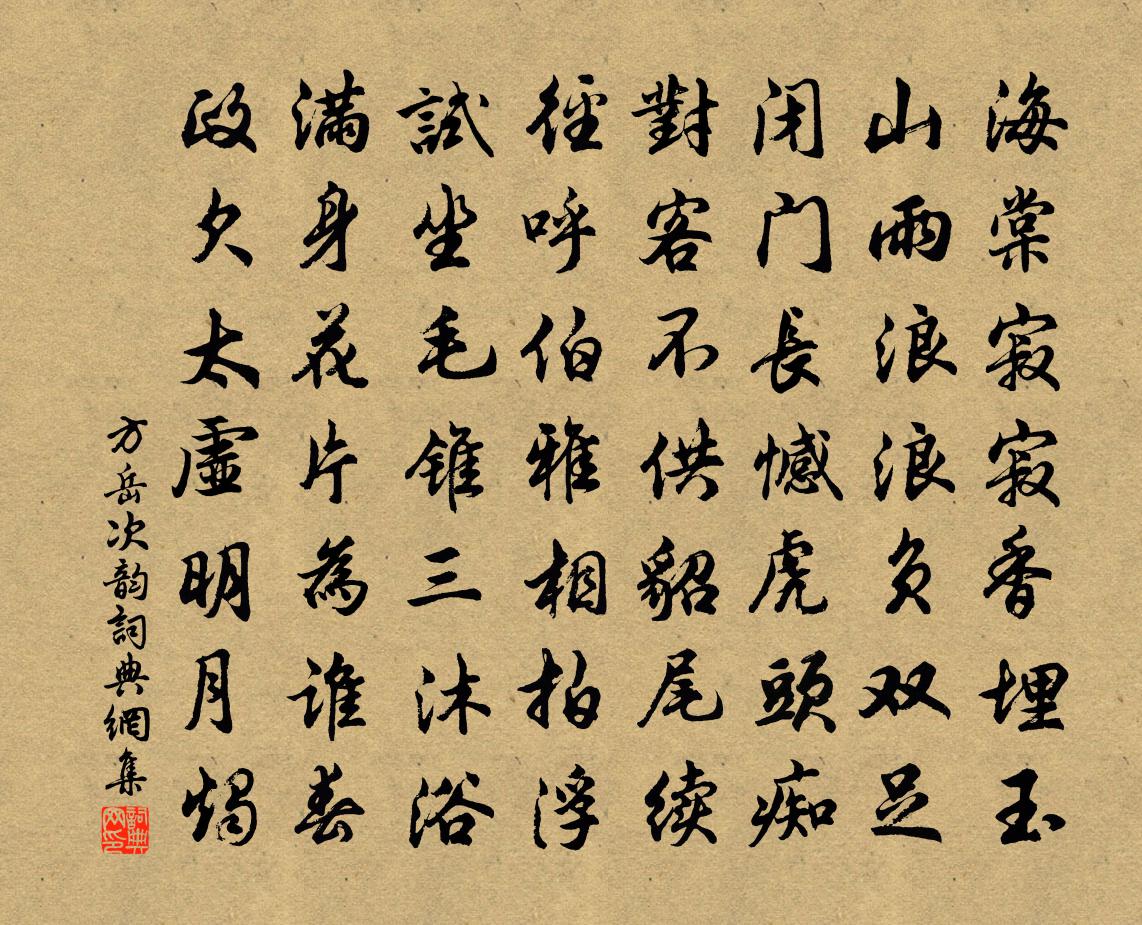 海棠寂寂香埋玉
山雨浪浪负双足
闭门長憾虎頭痴
對客不供貂尾续
徑呼伯雅相拍浮
試坐毛錐三沐浴
满身花片為誰春
政欠太虛明月燭
方岳次韵詞典網集
詞典網印